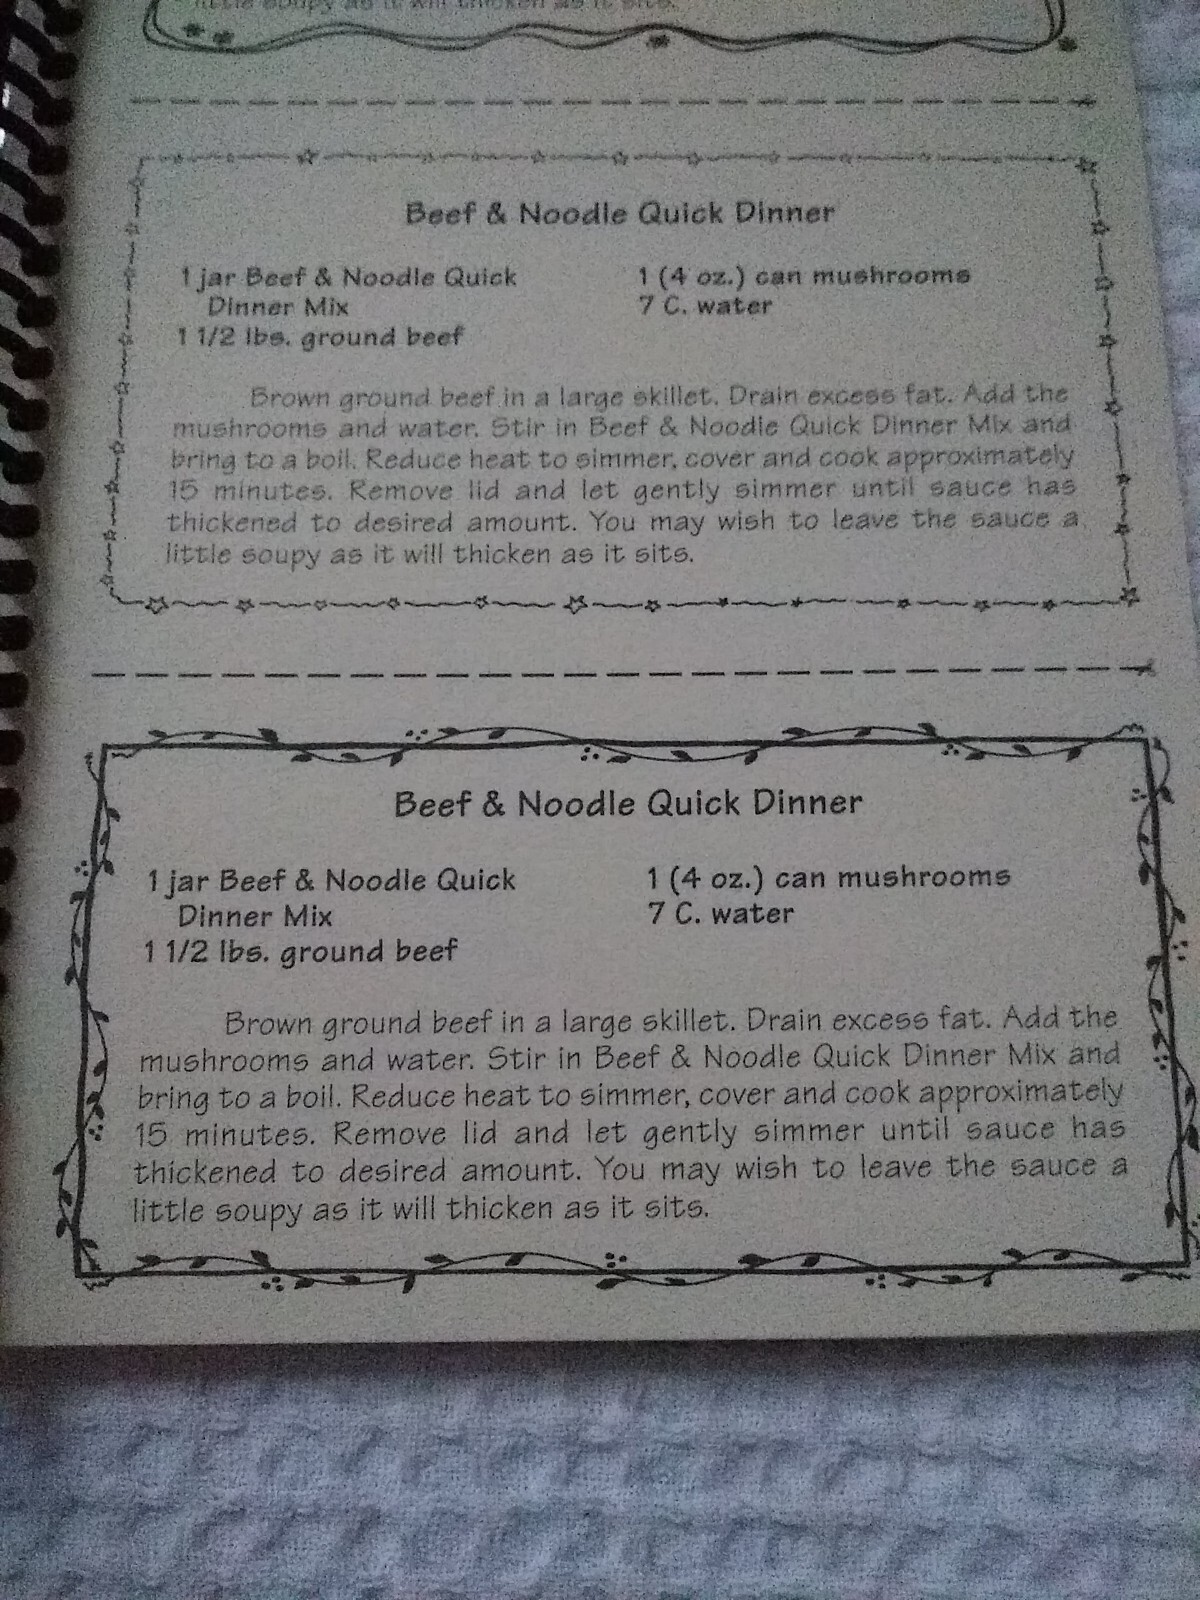 little soupy as it will thicken as it sits.
Beef & Noodle Quick Dinner
1 jar Beef & Noodle Quick
Dinner Mix
1 1/2 lbs. ground beef
1 (4 oz.) can mushrooms
7 C. water
Brown ground beef in a large skillet. Drain excess fat. Add the
mushrooms and water. Stir in Beef & Noodle Quick Dinner Mix and
bring to a boil. Reduce heat to simmer, cover and cook approximately
15 minutes. Remove lid and let gently simmer until sauce has
thickened to desired amount. You may wish to leave the sauce a
little soupy as it will thicken as it sits.
Beef & Noodle Quick Dinner
1 jar Beef & Noodle Quick
Dinner Mix
1 1/2 lbs. ground beef
1 (4 oz.) can mushrooms
7 C. water
Brown ground beef in a large skillet. Drain excess fat. Add the
mushrooms and water. Stir in Beef & Noodle Quick Dinner Mix and
bring to a boil. Reduce heat to simmer, cover and cook approximately
15 minutes. Remove lid and let gently simmer until sauce has
thickened to desired amount. You may wish to leave the sauce a
little soupy as it will thicken as it sits.